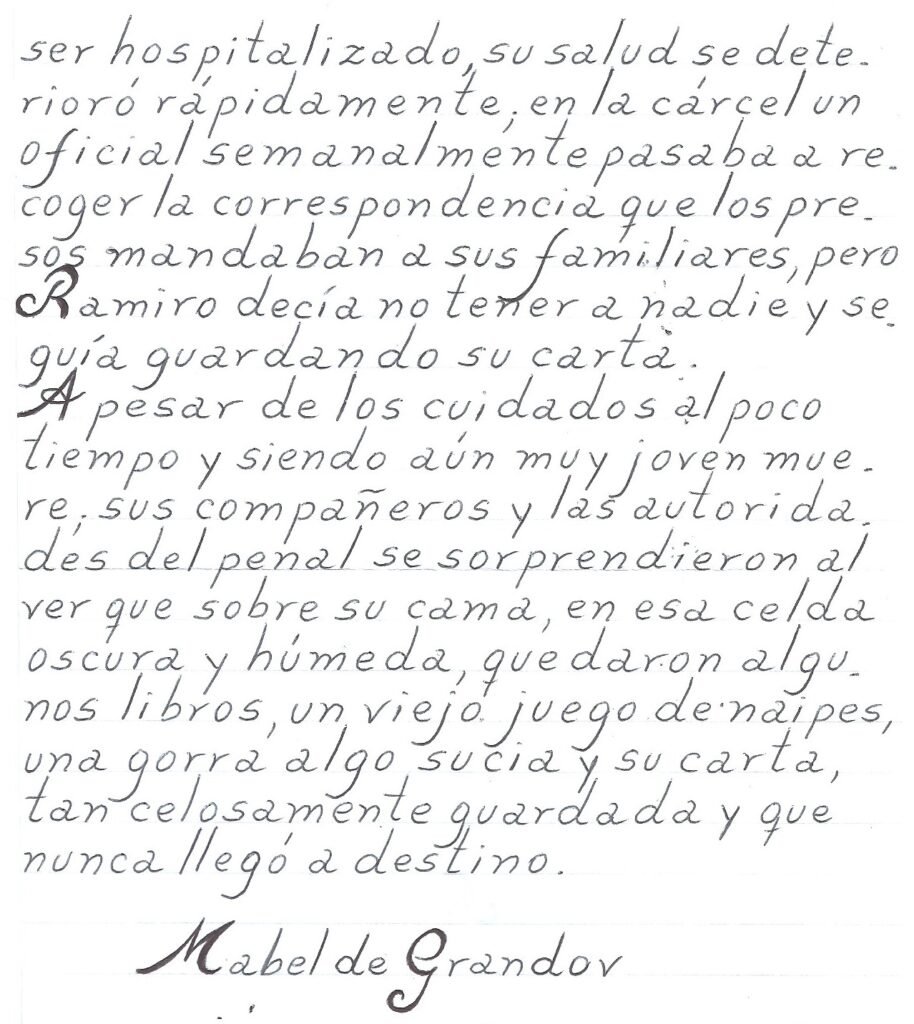 ser hospitalizado, su salud se dete-
rioró rápidamente; en la cárcel un
oficial semanalmente pasaba a re-
coger la correspondencia que los pre-
sos mandaban a sus familiares, pero
Ramiro decía no tener a nadie y se-
guía guardando su carta.
A pesar de los cuidados al poco
tiempo y siendo aún muy joven mue-
re; sus compañeros y las autorida-
des del penal se sorprendieron al
ver que sobre su cama, en esa celda
oscura y húmeda, quedaron algu-
nos libros, un viejo juego de naipes,
una gorra algo sucia y su carta,
tan celosamente guardada y que
nunca llegó a destino.
Mabel de Grandov